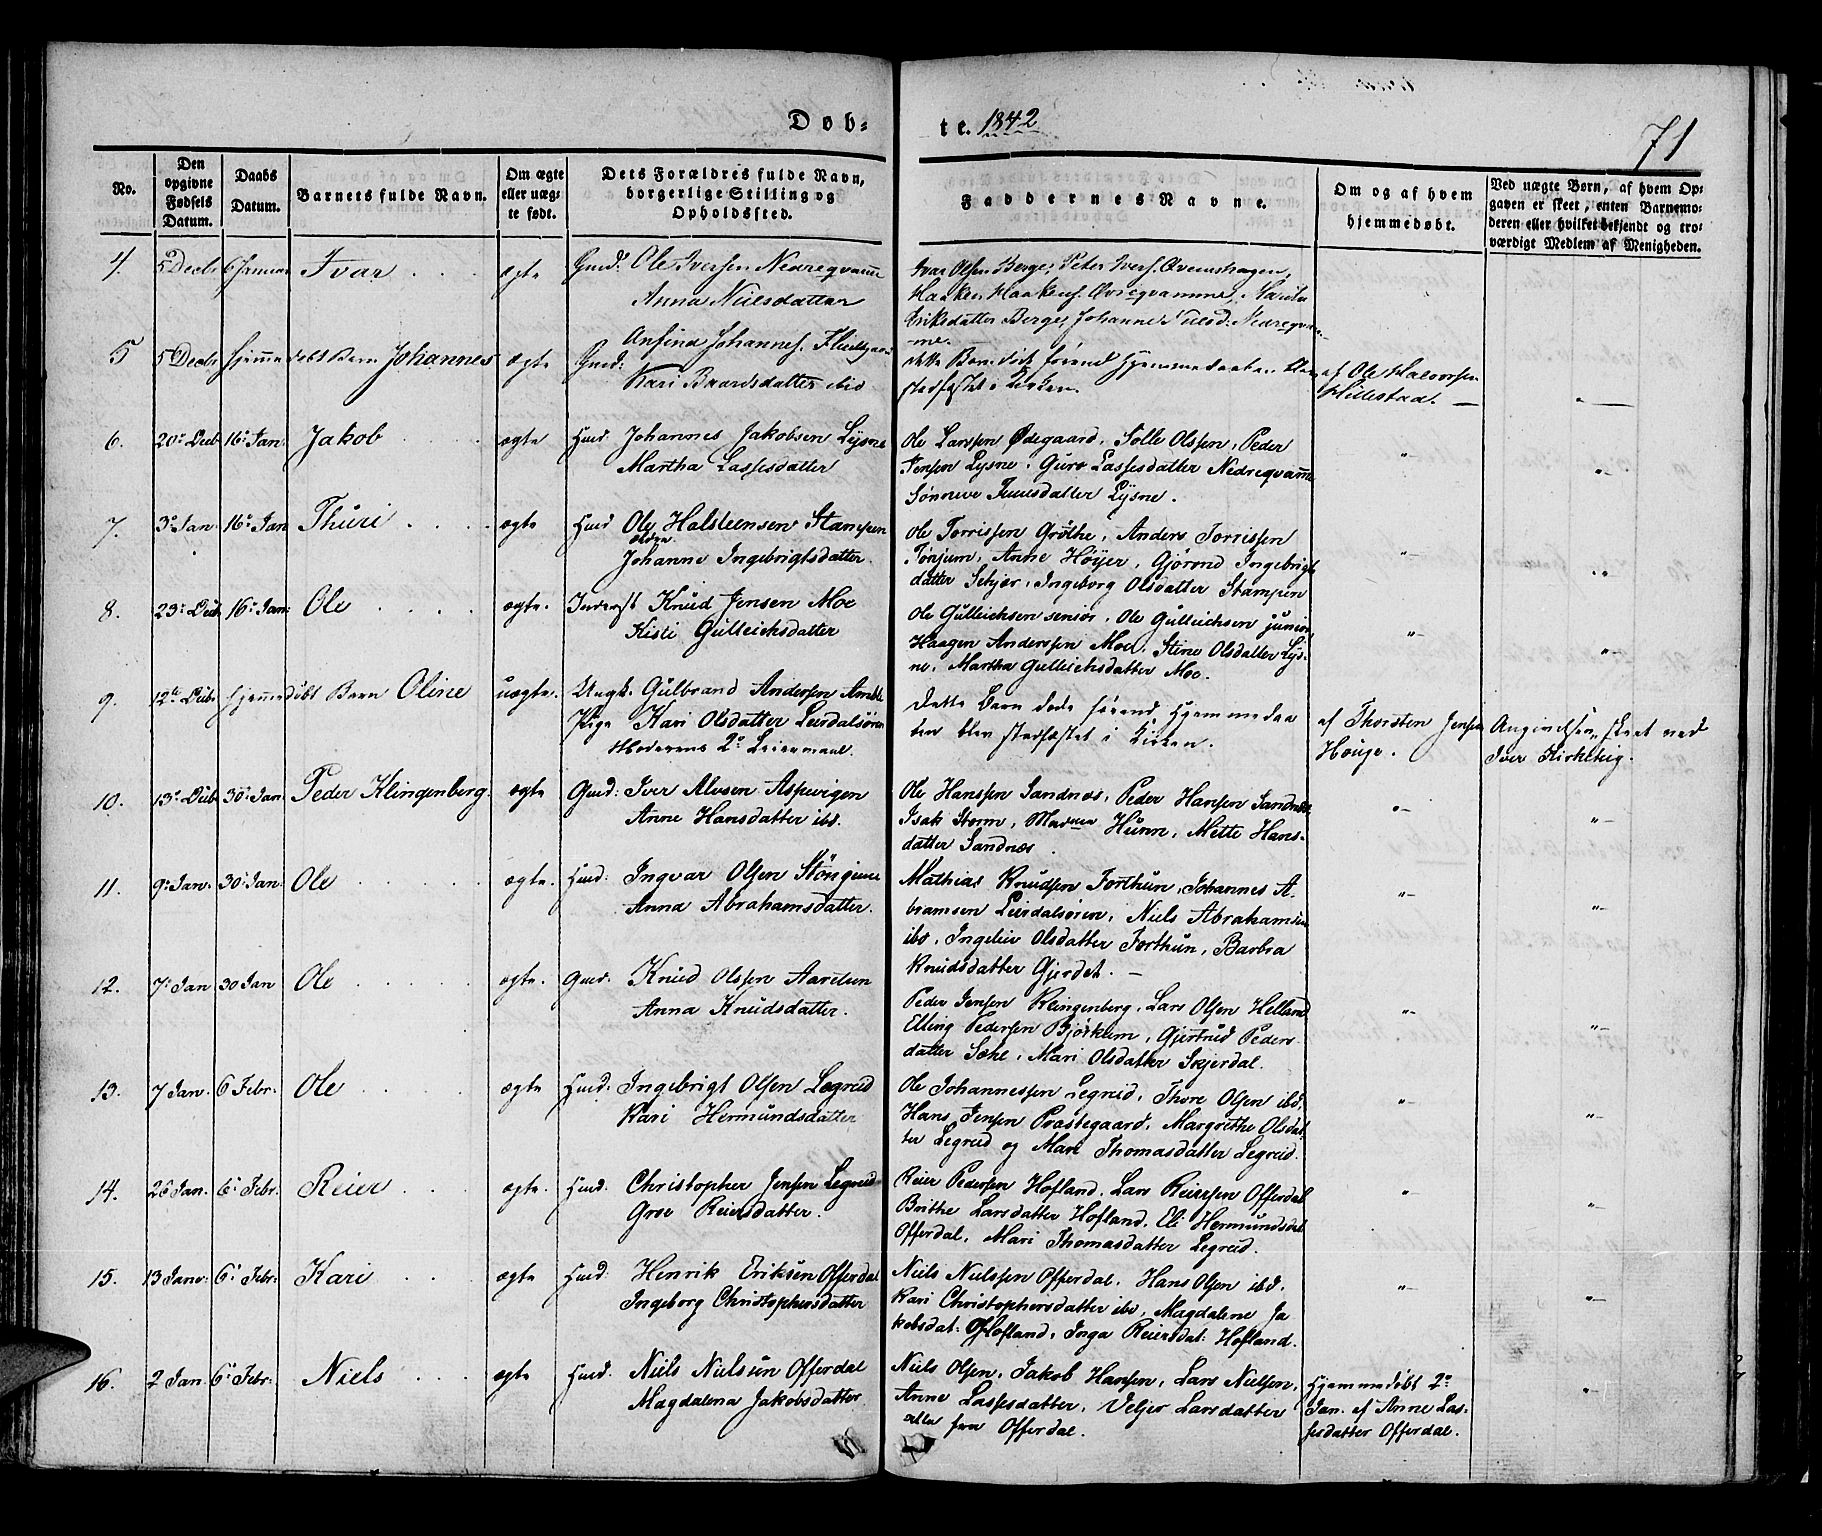 Døb-
te. 1842
71
No.
Den opgivne Fødsels Datum.
Daabs Datum.
Barnets fulde Navn.
Om ægte eller uægte født.
Dets Forældres fulde Navn, borgerlige Stilling og Opholdssted.
Faddernes Navne.
Om og af hvem hjemmedøbt.
Ved uægte Børn, af hvem Opgaven er skeet, enten Barnemoderen eller hvilket bekjendt og troværdigt Medlem af Menigheden.
4. 5 Decbr 6 Januar Ivar ægte Gmd: Ole Iversen Nedreqvamme
Anna Nielsdatter
Ivar Olsen Berge, Peter Ivers. Qvemshagen,
Haaken Haakens. Øvreqvamme, Marita
Eriksdatter Berge, Johanne Nielsd. Nedreqvam-
me.
5 5 Decbr hjemmedøbt Barn Johannes ægte Gmd: Anfind Johannes.
Kari Baardsdatter ibid
dette Barn døde førend Hjemmedaaben blev
stadfæstet i Kirken.
af Ole Halvorsen
Hillestad. —
"—
6. 20: Decb 16: Jan: Jakob ægte Huusmd Johannes Jakobsen Lysne
Martha Lassesdatter
Ole Larssen Ødegaard, Solle Olssen, Peder
Jensen Lysne, Guro Lassesdatter Nedreqvamme
Sønneve Jensdatter Lysne.
"—
"—
7. 3: Jan: 16: Jan Thuri ægte Huusmd Ole Halsteensen Stampen
Johanne Ingebrigtsdatter.
Ole Torrissen Grøthe, Anders Torrissen
Tønjum, Anne Høyer, Gjørond Ingebrigts
datter Schjær, Ingeborg Olsdatter Stampen
"—
"—
8. 23: Decb 16: Jan: Ole ægte. Inderst Knud Jensen Moe
Kisti Gulleichsdatter
Ole Gulleichsen senior, Ole Gulleichsen junior,
Haagen Anderssen Moe, Stine Olsdatter Lys-
ne, Martha Gulleichsdatter Moe.
"—
"—
9. 12te Decb: hjemmedøbt Barn Oline uægte. Ungk. Gulbrand Andersen Amble
Pige Kari Olsdatter Leirdalsøren
Moderens 2: Leiermaal.
Dette Barn døde førend Hjemmedaa
ben blev stadfæstet i Kirken.
af Thorsten Jensen
Houge.
Angivelsen skeet ved
Iver Kirketeig.
10. 13: Decb 30: Jan: Peder Klingenberg. ægte Gmd: Iver Alvsen Aspevigen
Anne Hansdatter ibd.
Ole Hanssen Sandnæs, Peder Hansen Sandnæs,
Isak Storm, Madme Hunn, Mette Hans-
datter Sandnæs.
"—
"—
11. 9: Jan: 30: Jan: Ole ægte. Huusmd: Ingvar Olsen Stønjum
Anna Abrahamsdatter.
Mathias Knudsen Forthun, Johannes A-
bramsen Leirdalsøren, Niels Abrahamsen
ibd, Ingeleiv Olsdatter Forthun, Barbra
Knudsdatter Gjerdet. —
"—
"—
12. 7: Jan 30 Jan Ole ægte. Gmd. Knud Olssen Aaretun
Anna Knudsdatter.
Peder Jensen Klingenberg, Lars Olsen Helland
Elling Pedersen Bjørkum, Gjertrud Peders
datter Sæhe, Mari Olsdatter Skjerdal.
"—
"—
13. 7 Jan. 6 Febr: Ole ægte Huusmd: Ingebrigt Olsen Legreid
Kari Hermundsdatter
Ole Johannessen Legreid, Thore Olsen ibd,
Hans Jensen Præstegaard, Margrethe Olsdat
ter Legreid og Mari Thomasdatter Legreid.
"—
"—
14. 26 Jan. 6: Febr. Reier ægte. Huusmd: Christopher Jensen Legreid
Groe Reiersdatter.
Reier Pedersen Hofland, Lars Reierssen Offerdal
Brithe Larsdatter Hofland, Eli Hermundsdat
Offerdal, Mari Thomasdatter Legreid.
"—
"—
15. 13 Janr: 6: Febr: Kari ægte Huusmd: Henrik Eriksen Offerdal
Ingeborg Christophersdatter
Niels Nielssen Offerdal, Hans Olsen ibd.
Kari Christophersdatter ibd, Magdalene Ja
kobsdat: Hofland, Inga Reiersdat: Hofland.
"—
"—
16. 2 Jan. 6: Febr: Niels ægte Huusmd. Niels Nielsen Offerdal
Magdalena Jakobsdatter
Niels Olsen, Jakob Hansen, Lars Nielsen,
Anne Lassesdatter, Larsdatter
alle fra Offerdal.
Hjemmedøbt 2:
Jan. af Anne Las-
sesdatter Offerdal.
"—